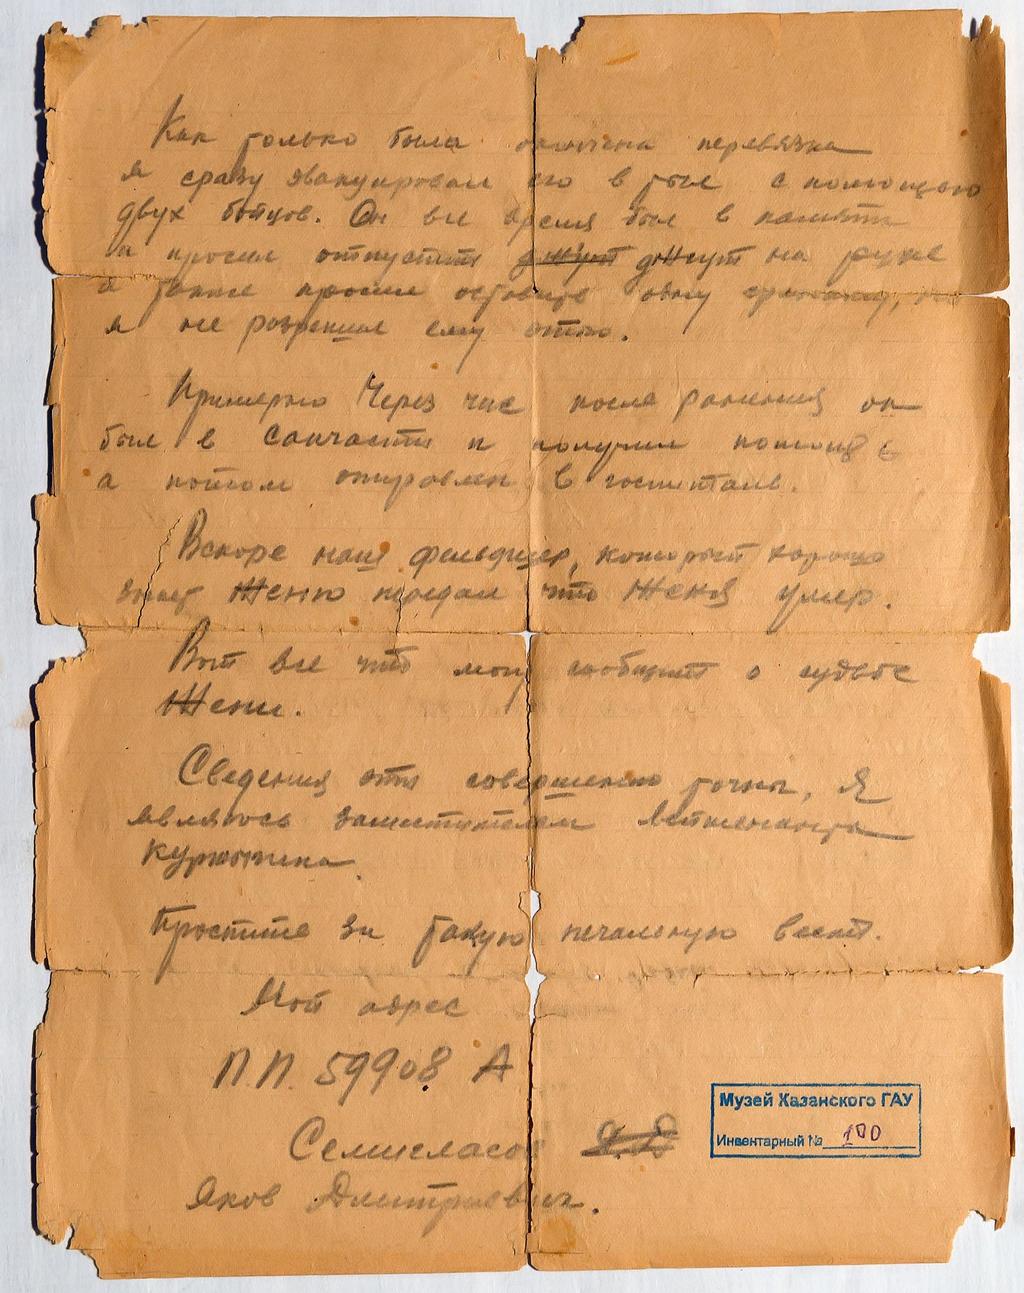 Как только была окончена перевязка
я сразу эвакуировал его в тыл с помощью
двух бойцов. Он все время был в памяти
и просил отпустить джут джгут на руке
а также просил оставить одну гранату, но
я не разрешил ему этого.
Примерно Через час после ранения он
был в Санчасти и получил помощь
а потом отправлен в госпиталь.
Вскоре наш фельдшер, который хорошо
знает Женю передал что Женя умер.
Вот все что могу сообщить о судьбе
Жени.
Сведения эти совершенно точны, Я
являюсь заместителем лейтенанта
Простите за такую печальную весть.
Мой адрес
П.П. 59908 А
Яков Дмитриевич.
Музей Казанского ГАУ
Инвентарный № 100